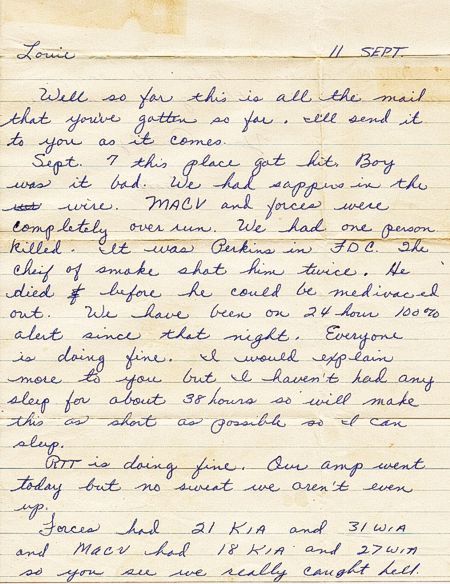 Louie 11 SEPT.
Well so far this is all the mail
that you've gotten so far. I'll send it
to you as it comes.
Sept. 7 this place got hit. Boy
was it bad. We had sappers in the
wire. MACV and forces were
completely over run. We had one person
killed. It was Perkins in FDC. The
cheif of smoke shot him twice. He
died before he could be medivaced
out. We have been on 24 hour 100%
alert since that night. Everyone
is doing fine. I would explain
more to you but I haven't had any
sleep for about 38 hours so will make
this as short as possible so I can
sleep.
RTT is doing fine. Our amp went
today but no sweat we aren't even
up.
Forces had 21 KIA and 31 WIA
and MACV had 18 KIA and 27 WIA
so you see we really caught hell.